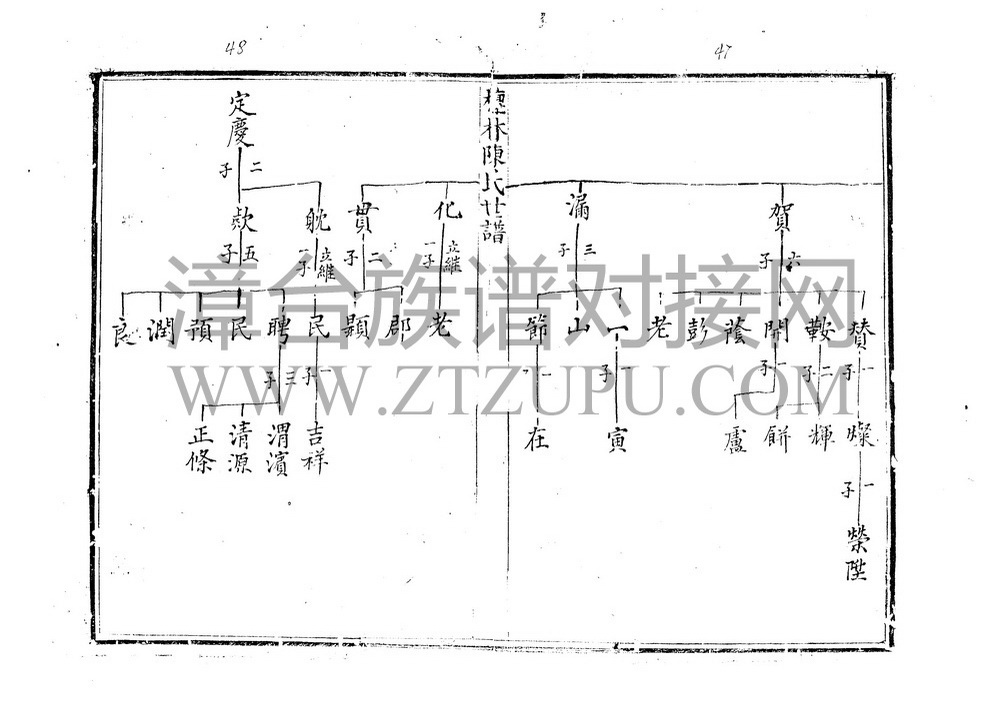 47
賀
六子
賛
鞍
開
蔭
彭
老
一子
二子
一子
燦
輝
餅
盧
一子
榮陞
漏
三子
一
山
節
一子
一
寅
在
林陳氏世譜
48
化
立繼一子
老
貫
二子
郡
顯
定慶
二子
躭
立繼一子
民
一子
吉祥
欵
五子
聘
民
預
潤
良
三子
渭濱
清源
正條
漳台族谱对接网
WWW.ZTZUPU.COM